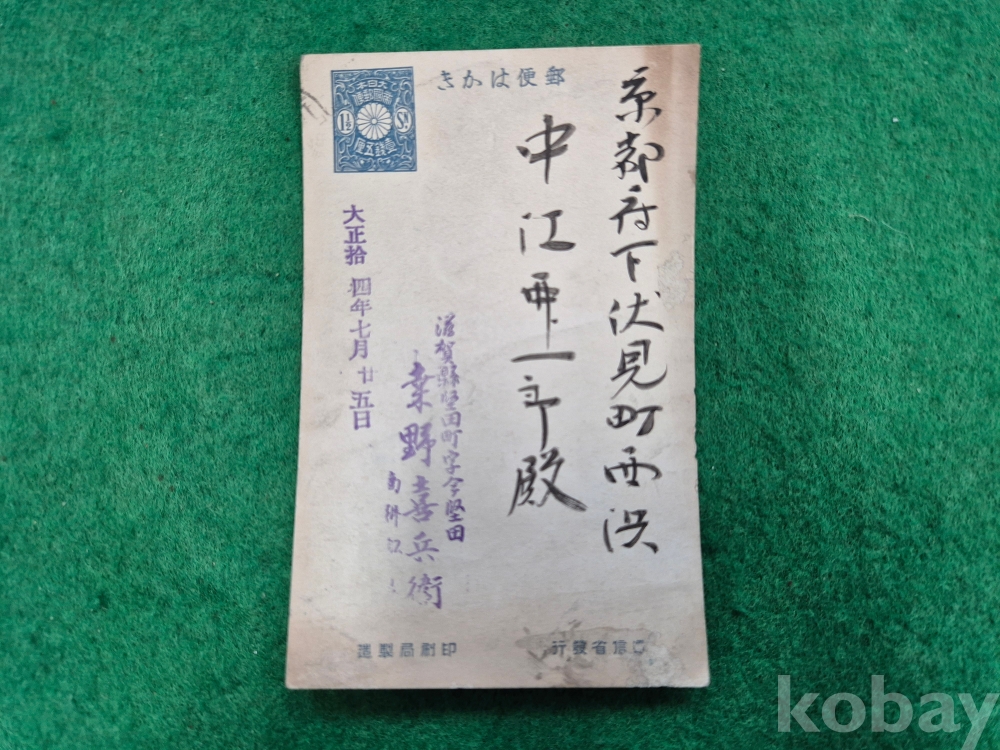 郵便はかき
大日本
帝國郵便
1½ Sn
壹錢五厘
京都府下伏見町西浜
中江弗一郎殿
滋賀縣堅田町字今堅田
桒野喜兵衛
大正拾四年七月廿五日
信省發行
印刷局製造
kobay